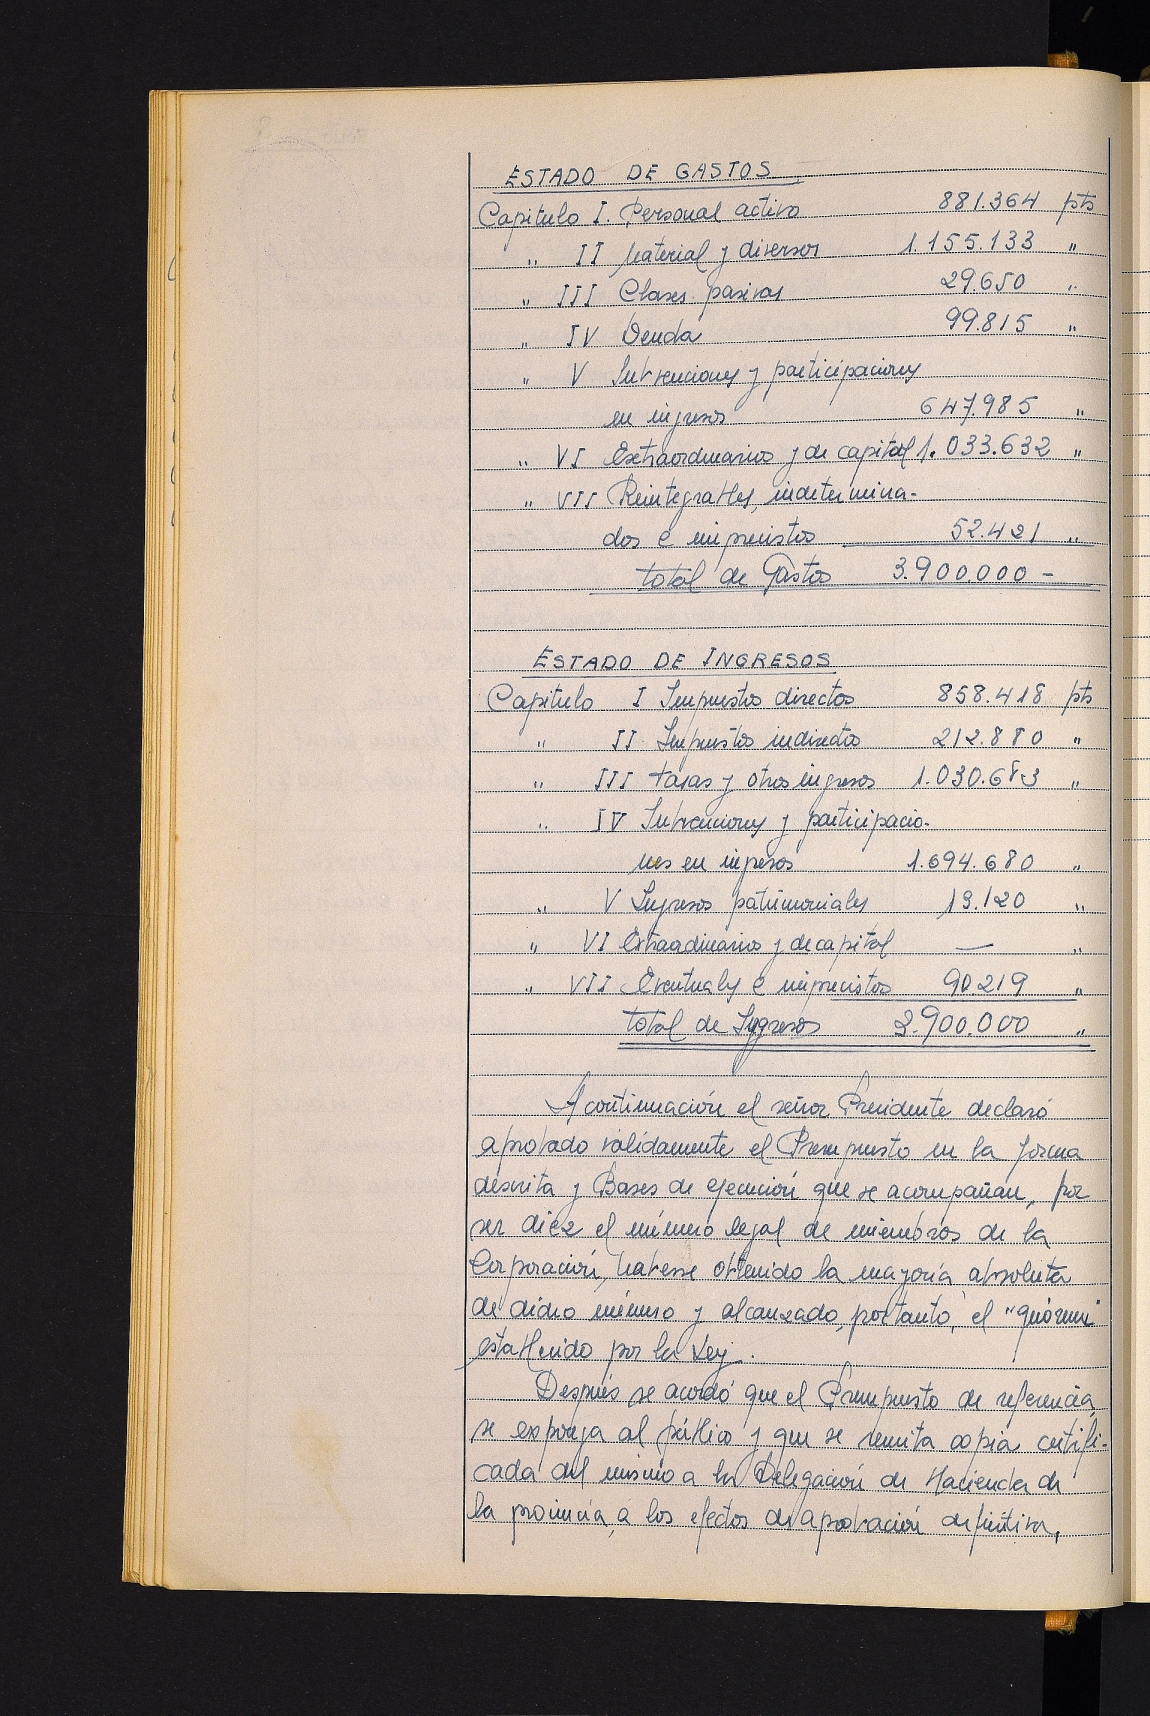 ESTADO DE GASTOS
Capitulo I. Personal activo 881.364 pts
" II Material y diversos 1.155.133 "
" III Clases pasivas 29.650 "
" IV Deuda 99.815 "
" V Subvenciones y participaciones
en ingresos 647.985 "
" VI Extraordinarios y de capital 1.033.632 "
" VII Reintegrables, indetermina-
dos e imprevistos 52.421 "
total de Gastos 3.900.000 -
ESTADO DE INGRESOS
Capitulo I Impuestos directos 858.418 pts
" II Impuestos indirectos 212.880 "
" III tasas y otros ingresos 1.030.683 "
" IV Subvenciones y participacio-
nes en ingresos 1.694.680 "
" V Ingresos patrimoniales 13.120 "
" VI Extraordinarios y de capital — "
" VII Eventuales e imprevistos 90.219 "
total de Ingresos 3.900.000 "
A continuación el señor Presidente declaró
aprobado válidamente el Presupuesto en la forma
descrita y Bases de ejecución que se acompañan, por
ser diez el número legal de miembros de la
Corporación, haberse obtenido la mayoría absoluta
de dicho número y alcanzado, por tanto, el "quórum"
establecido por la Ley.
Después se acordó que el Presupuesto de referencia,
se exponga al público y que se remita copia certifi-
cada del mismo a la Delegación de Hacienda de
la provincia, a los efectos de aprobación definitiva,